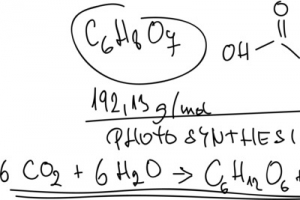 C₆H₈O₇
O
OH
192,13 g/mol
PHOTOSYNTHESI
6 CO₂ + 6 H₂O → C₆H₁₂O₆ +